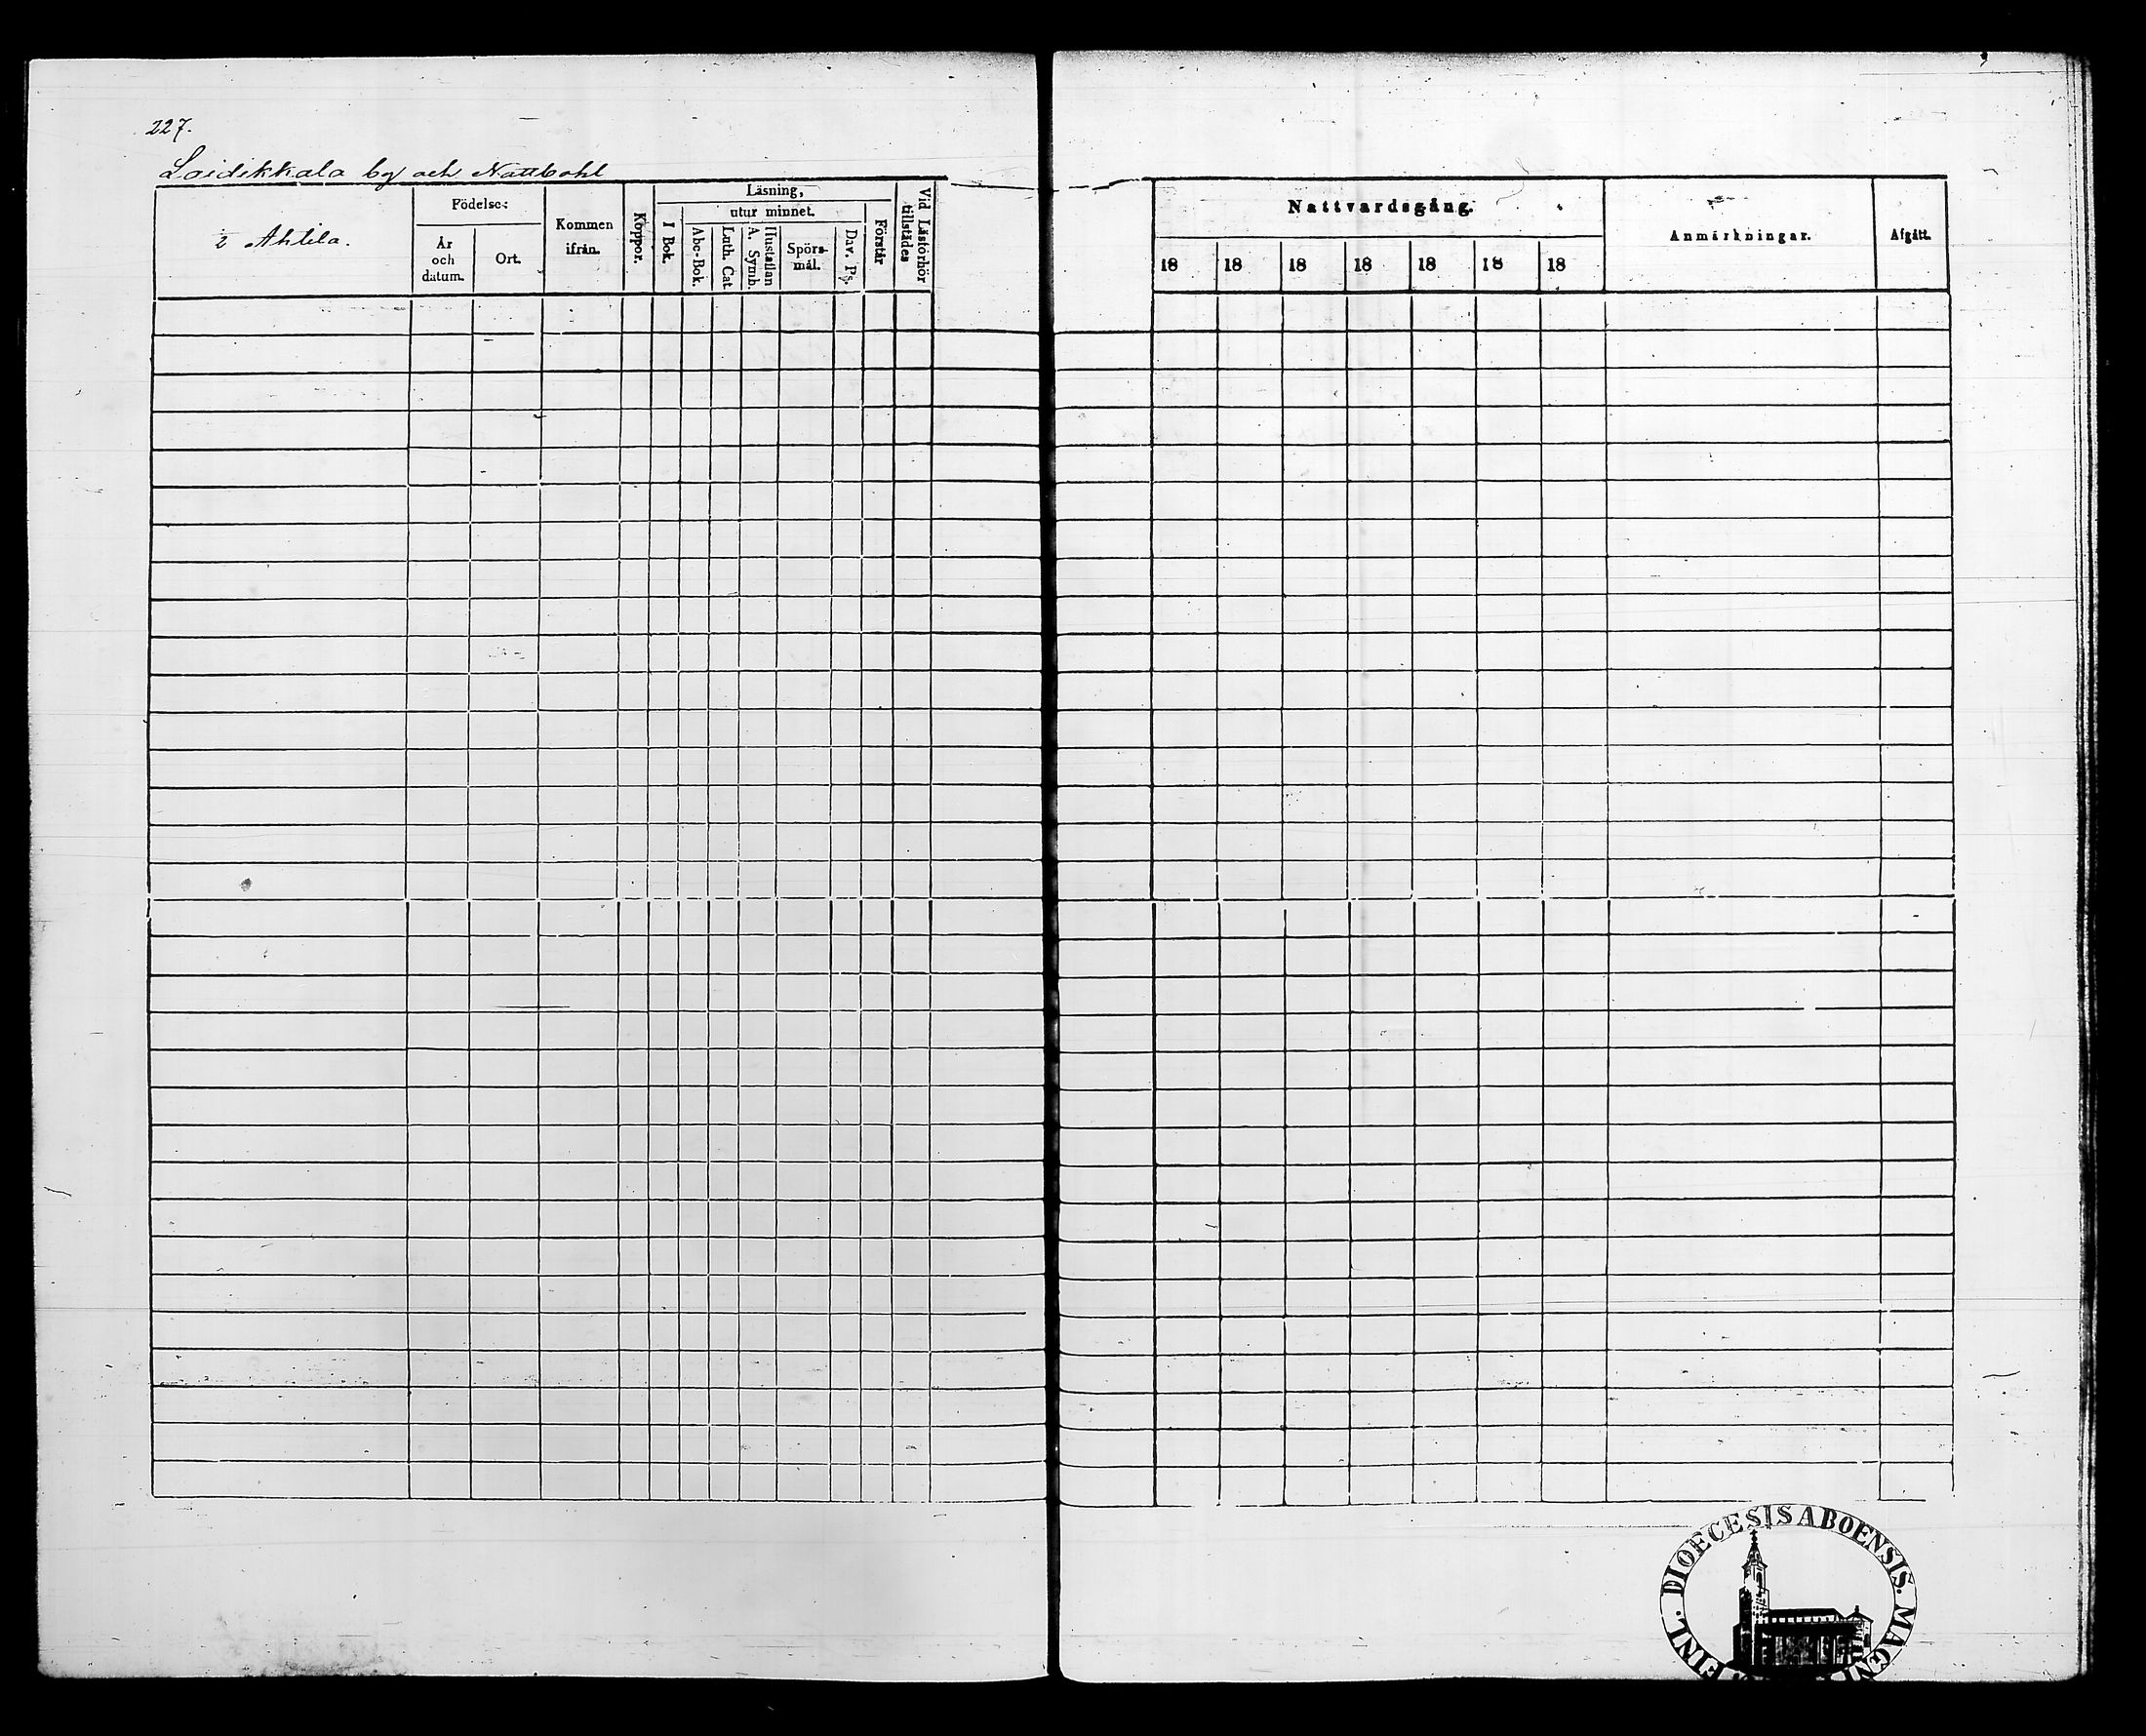 227.
Laidikkala by och Nattbohl
2 Ahtila.
Födelse:
År och datum.
Ort.
Kommen ifrån.
Koppor.
Läsning,
utur minnet.
I Bok.
Abc-Bok.
Luth. Cat.
Hustaflan A. Symb.
Spörs-mål.
Dav. Ps.
Förstår
Vid Läsförhör tillstädes
Nattvardsgång.
18 18 18 18 18 18 18
Anmärkningar.
Afgått.
FINL. DIOECESIS ABOENSIS. MAGNI